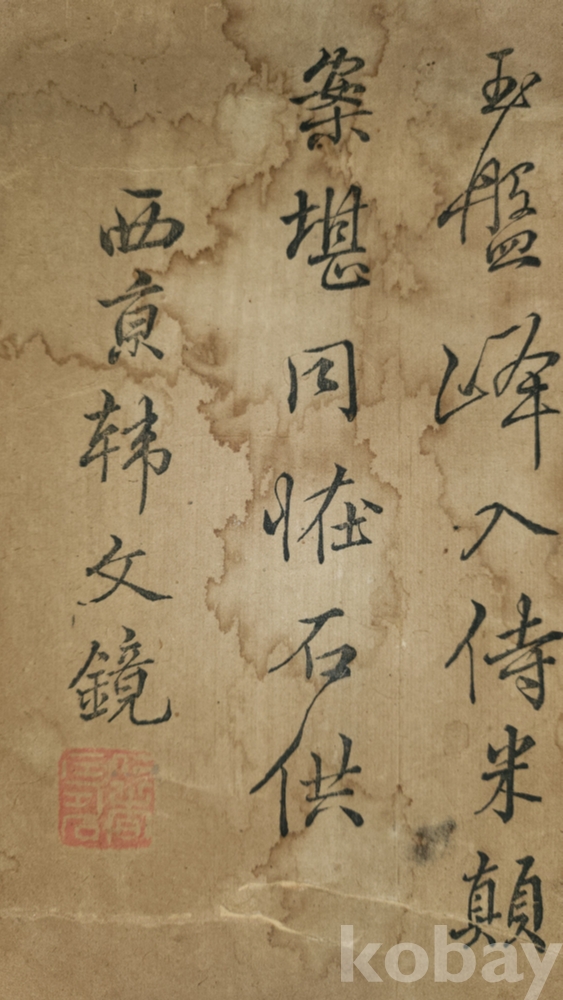 玉盤峰入侍米顛
案堪同恠石供
西京韩文鏡
kobay